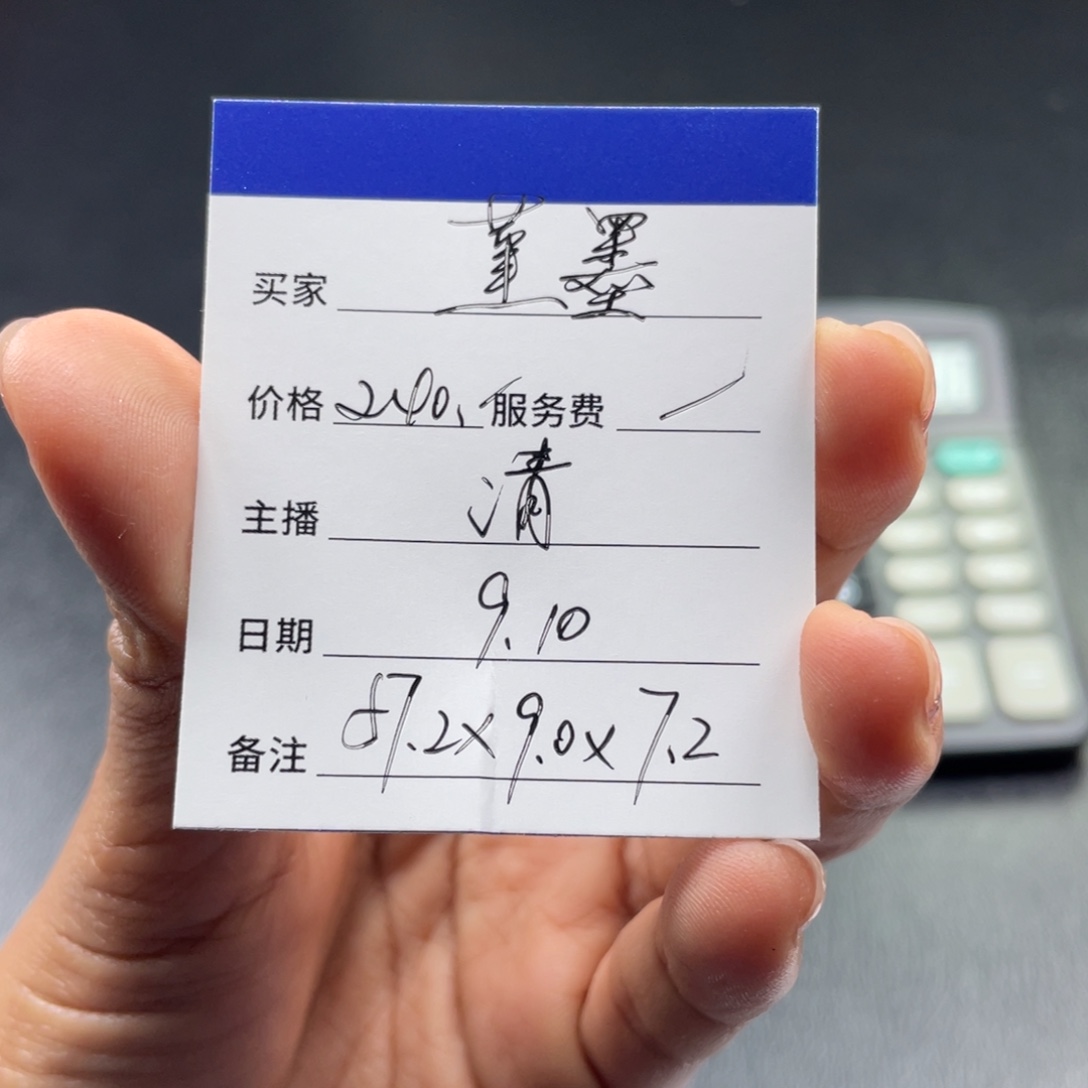 买家 堇墨
价格 2400. 服务费 /
主播 清
日期 9.10
备注 57.2x9.0x7.2